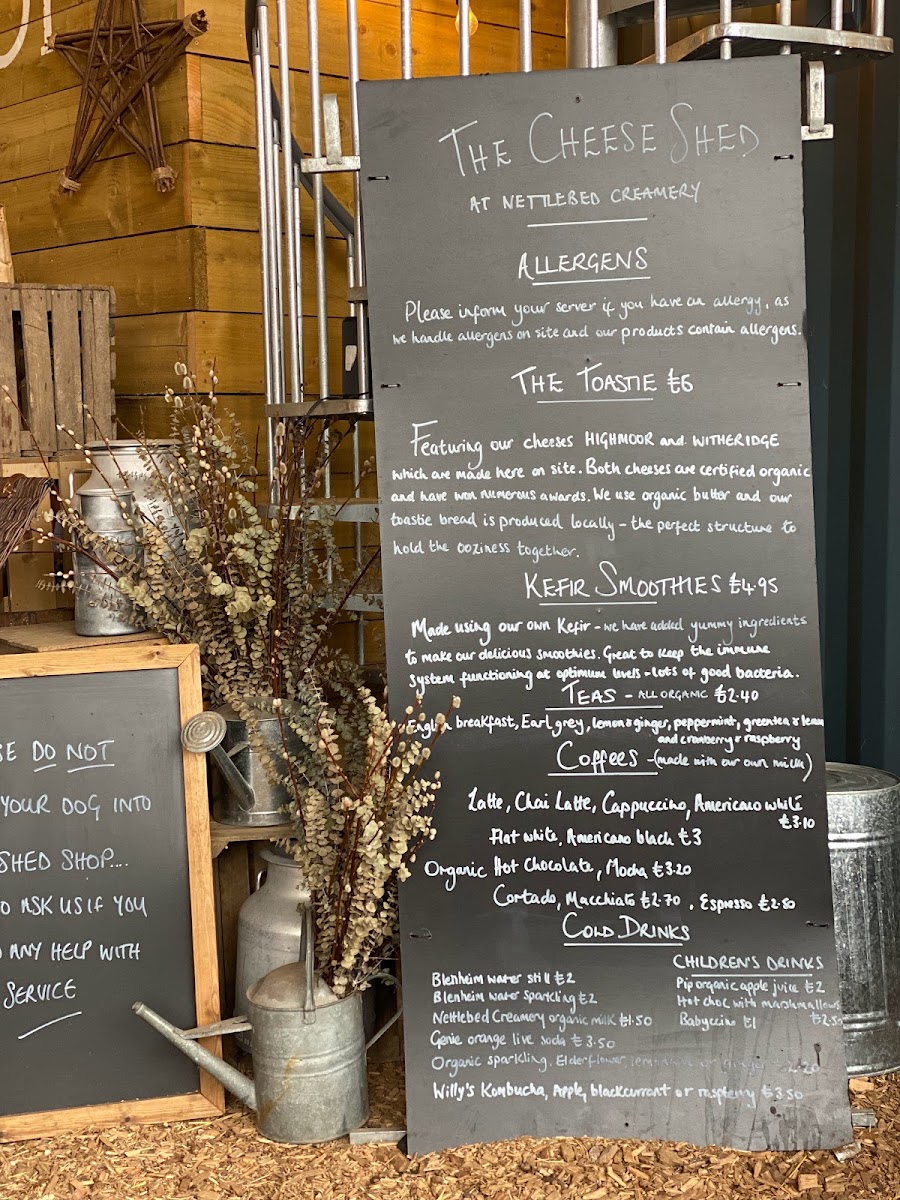 THE CHEESE SHED
AT NETTLEBED CREAMERY
ALLERGENS
Please inform your server if you have an allergy, as
we handle allergens on site and our products contain allergens.
THE TOASTIE £6
Featuring our cheeses HIGHMOOR and WITHERIDGE
which are made here on site. Both cheeses are certified organic
and have won numerous awards. We use organic butter and our
toastie bread is produced locally - the perfect structure to
hold the ooziness together.
KEFIR SMOOTHIES £4.95
Made using our own Kefir - we have added yummy ingredients
to make our delicious smoothies. Great to keep the immune
system functioning at optimum levels - lots of good bacteria.
TEAS - ALL ORGANIC £2.40
English breakfast, Earl grey, lemon & ginger, peppermint, green tea & lemon
and cranberry & raspberry
Coffees - (made with our own milk)
Latte, Chai Latte, Cappuccino, Americano white
£3.10
Flat white, Americano black £3
Organic Hot Chocolate, Mocha £3.20
Cortado, Macchiato £2.70, Espresso £2.50
COLD DRINKS
Blenheim water still £2
Blenheim water sparkling £2
Nettlebed Creamery organic milk £1.50
Genie orange live soda £3.50
Organic sparkling, Elderflower, or ginger
Willy's Kombucha, Apple, blackcurrant or raspberry £3.50
CHILDREN'S DRINKS
Pip organic apple juice £2
Hot choc with marshmallows
£2.50
Babyccino £1
SE DO NOT
YOUR DOG INTO
SHED SHOP....
O ASK US IF YOU
D ANY HELP WITH
SERVICE